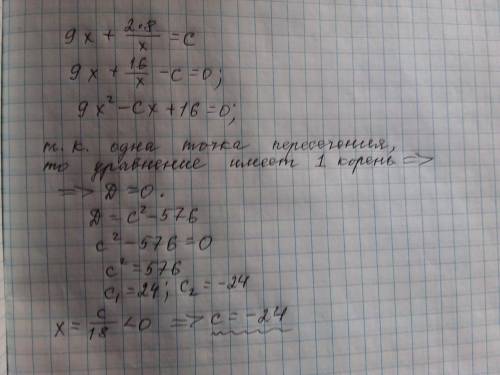 9x + \frac{2·8}{x} = c
9x + \frac{16}{x} - c = 0;
9x² - cx + 16 = 0;
т. к. одна точка пересечения,
то уравнение имеет 1 корень =>
=> D = 0.
D = c² - 576
c² - 576 = 0
c² = 576
c₁ = 24; c₂ = -24
x = \frac{c}{18} < 0 => c = -24